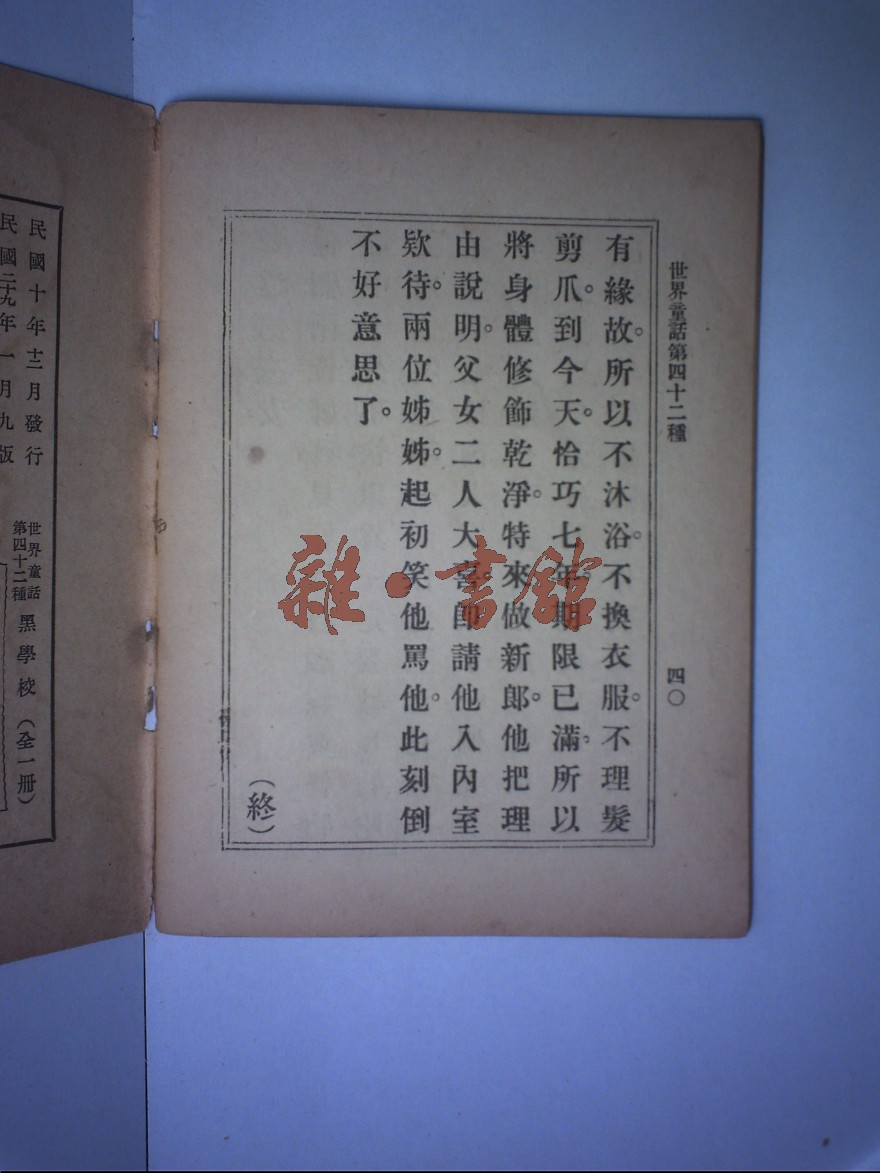 世界童話第四十二種
四〇
有緣故。所以不沐浴。不換衣服。不理髮
剪爪。到今天。恰巧七年。期限已滿。所以
將身體修飾乾淨。特來做新郎。他把理
由說明。父女二人大喜。卽請他入內室
欵待。兩位姊姊。起初笑他罵他。此刻倒
不好意思了。
（終）
民國十年十二月發行
民國二十九年一月九版
世界童話
第四十二種
黑學校（全一册）
雜·書館